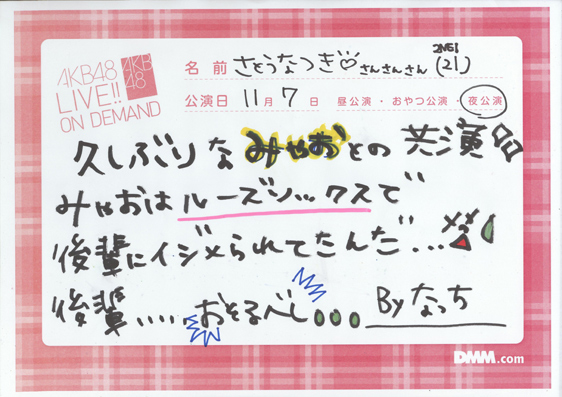 AKB48
LIVE!!
ON DEMAND
AKB
48
名前 さとうなつき♡さんさんさん (21)
公演日 11月7日 昼公演・おやつ公演・夜公演
久しぶりなみゃおとの共演
みゃおはルーズソックスで
後輩にイジメられてたんだ…
後輩.....おそるべし...
Byなっち
DMM.com